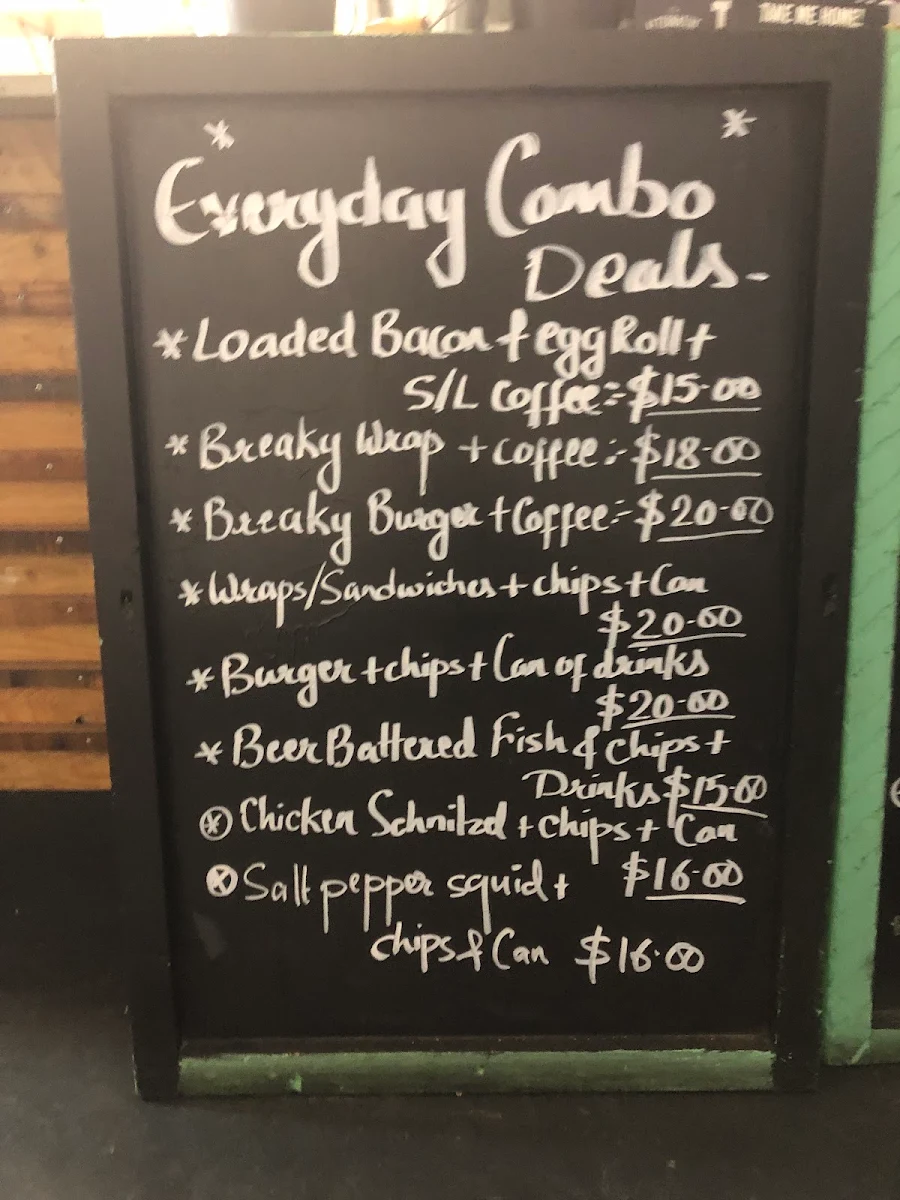 TAKE ME HOME!
* *
Everyday Combo
Deals-
* Loaded Bacon & egg Roll +
S/L Coffee:- $15-00
* Breaky Wrap + coffee:- $18-00
* Breaky Burger + Coffee:- $20-00
* Wraps/Sandwiches + chips + Can
$20-00
* Burger + chips + Can of drinks
$20-00
* Beer Battered Fish & chips +
Drinks $15-00
* Chicken Schnitzel + chips + Can
$16-00
* Salt pepper squid +
chips & Can $16.00